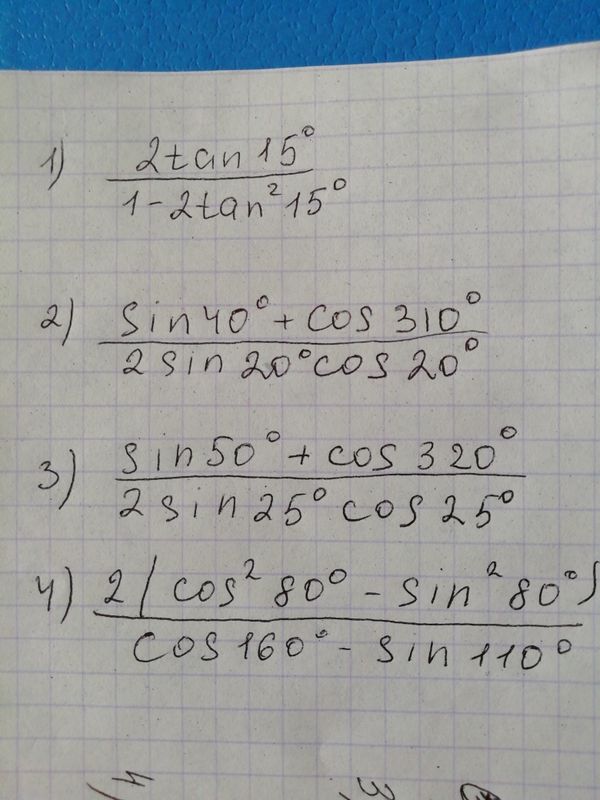 1) 2tan15°
1-2tan²15°
2) sin40°+cos310°
2sin20°cos20°
3) sin50°+cos320°
2sin25°cos25°
4) 2(cos²80°-sin²80°)
cos160°-sin110°